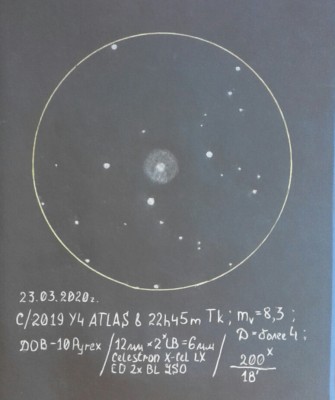 23.03.2020г.
C/2019 Y4 ATLAS в 22h45m Tk; mv=8,3;
D=более 4;
DOB-10 Pyrex / 12мм × 2ˣLB=6мм / 200ˣ
Celestron X-Cel LX
ED 2x BL ЭSO
18'